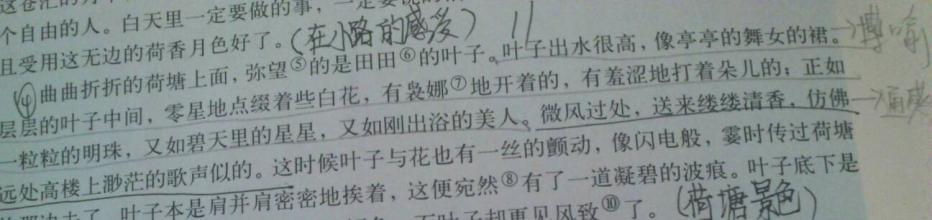 个自由的人。白天里一定要做的事，一定要说的
且受用这无边的荷香月色好了。(在小路的感受)
④曲曲折折的荷塘上面，弥望⑤的是田田⑥的叶子。叶子出水很高，像亭亭的舞女的裙。博喻
层层的叶子中间，零星地点缀着些白花，有袅娜⑦地开着的，有羞涩地打着朵儿的；正如
一粒粒的明珠，又如碧天里的星星，又如刚出浴的美人。微风过处，送来缕缕清香，仿佛
远处高楼上渺茫的歌声似的。这时候叶子与花也有一丝的颤动，像闪电般，霎时传过荷塘
叶子本是肩并肩密密地挨着，这便宛然⑧有了一道凝碧的波痕。叶子底下是
叶子却更见风致⑩了。(荷塘景色)